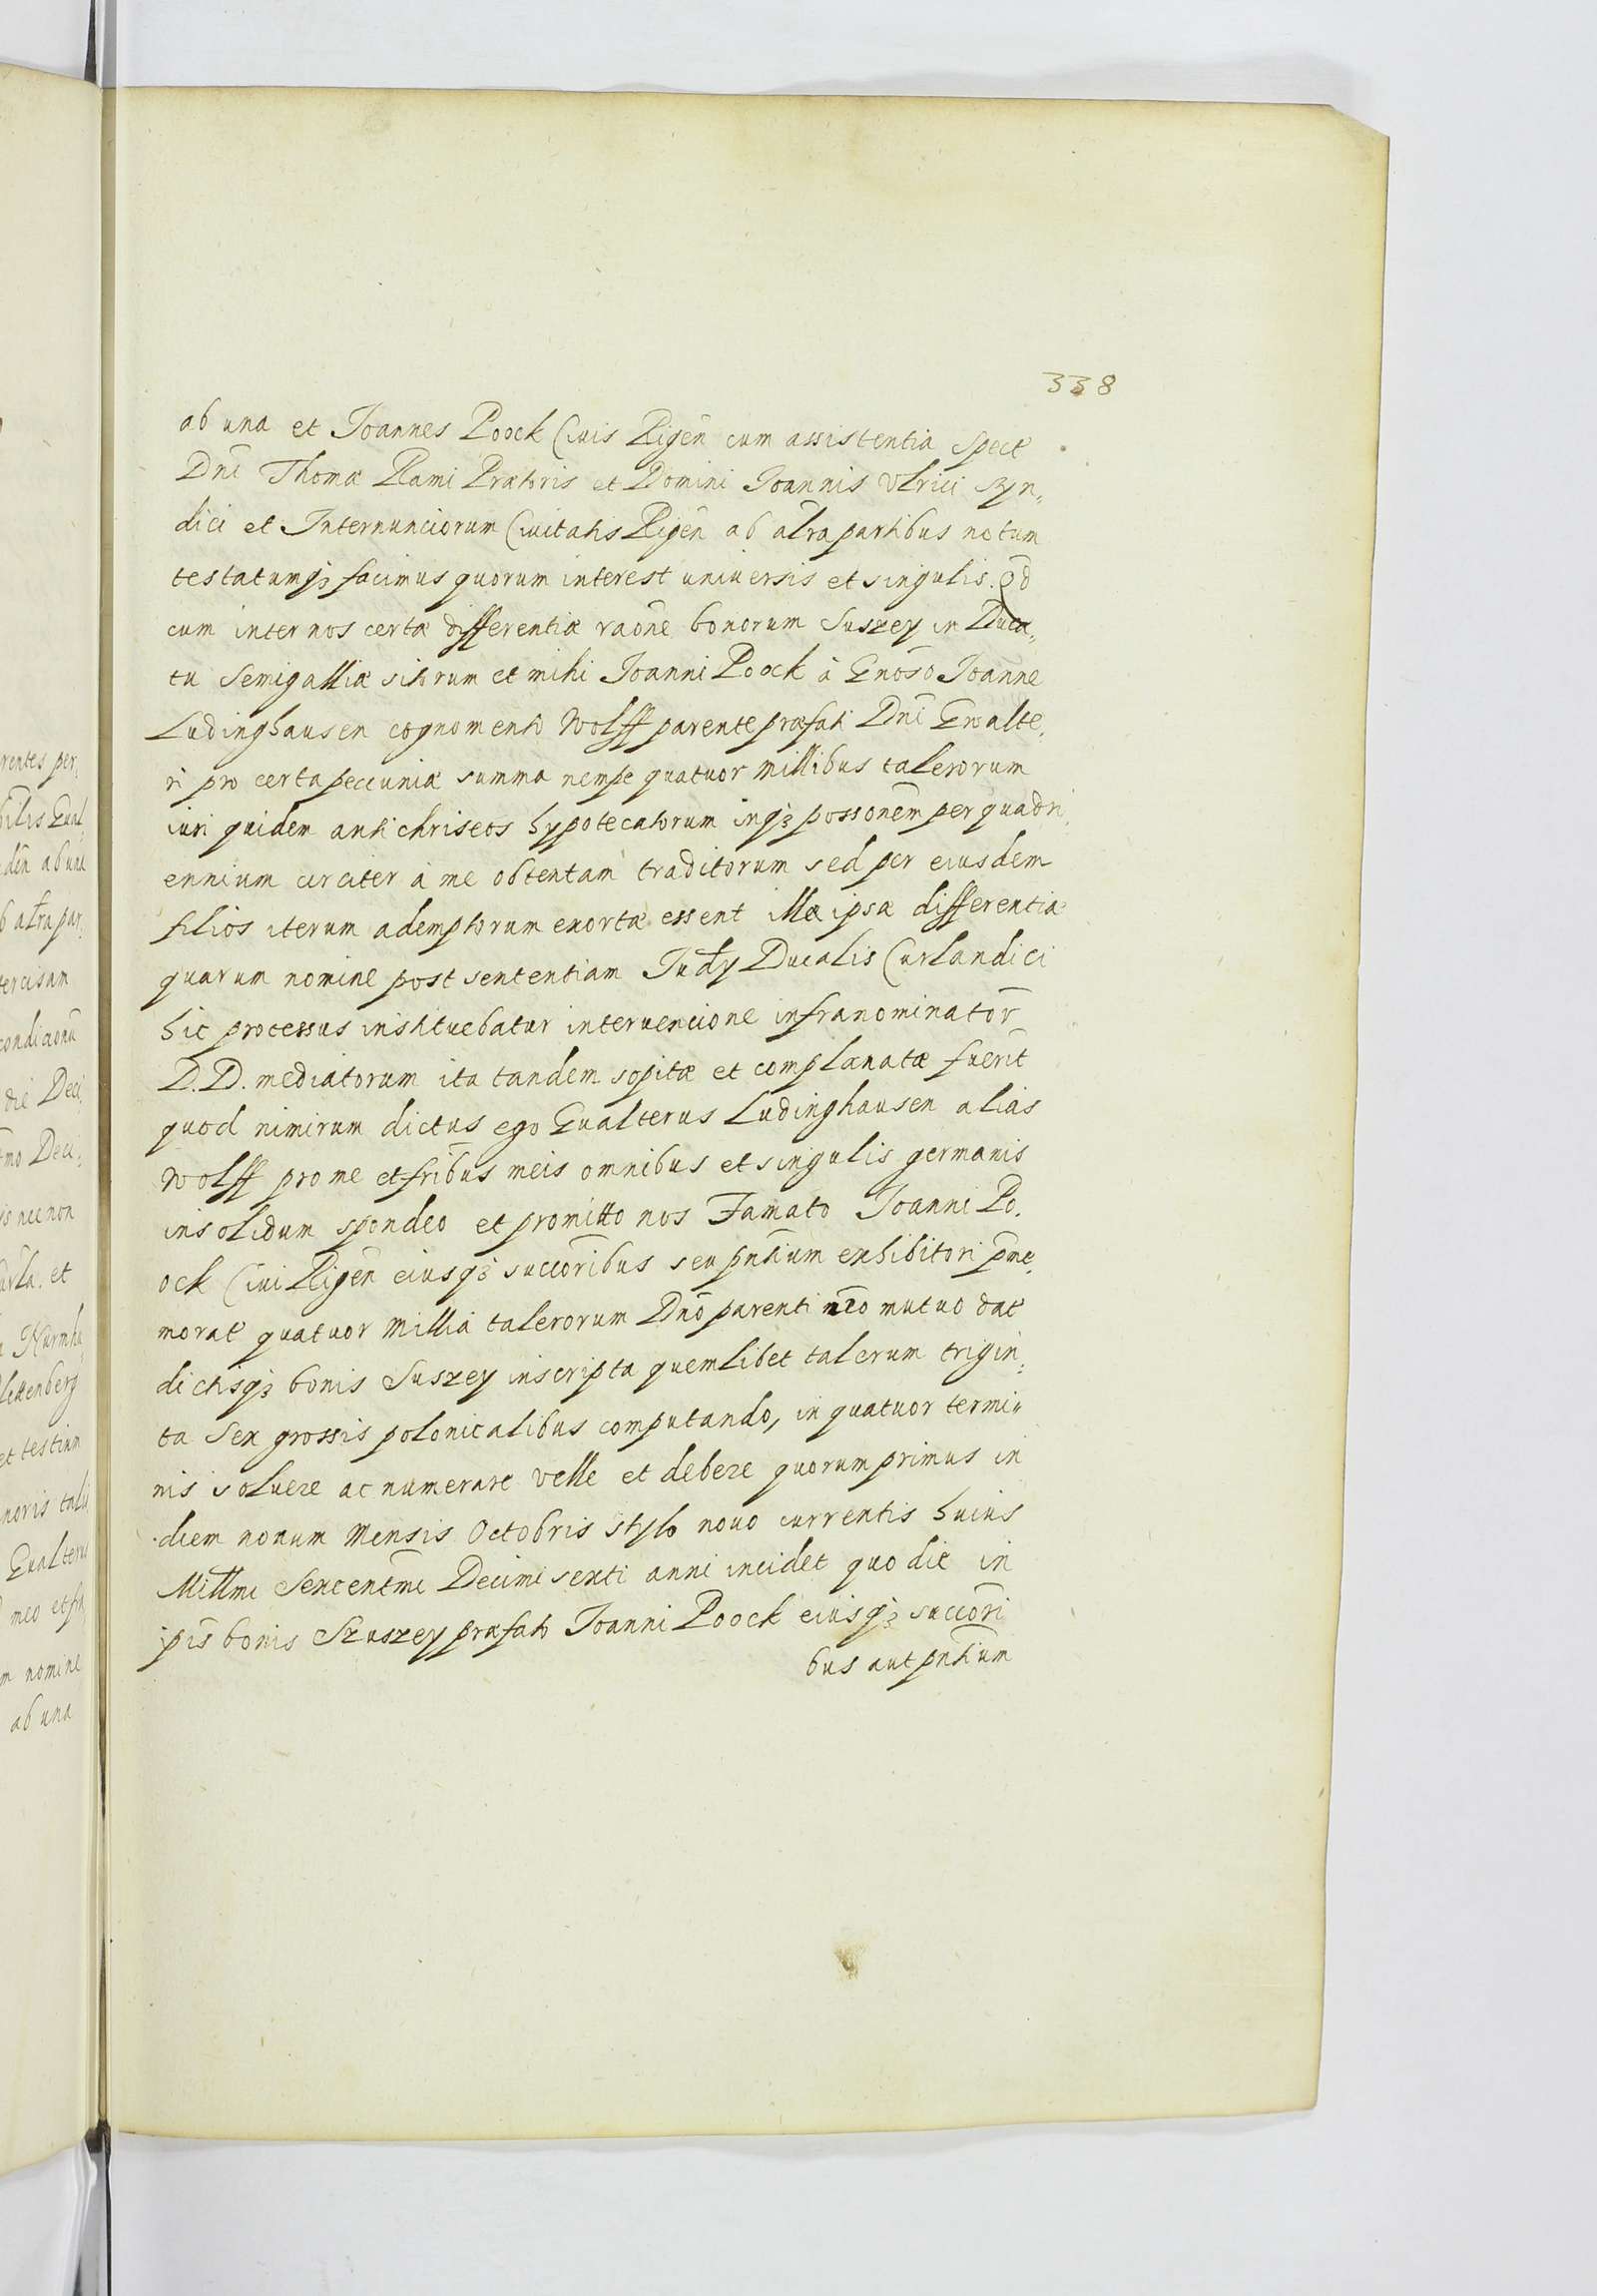 338
ab una et Joannes Poock Ciuis Rigen̄ cum assistentia Spect̄
Dnī Thomæ Rami Prætoris et Domini Joannis Vlrici Syn„
dici et Internunciorum Ciuitatis Rigen̄ ab alr̄a partibus notum
testatumqꝫ facimus quorum interest uniuersis et singulis. Qd̄
cum inter nos certæ differentiæ raōne bonorum Suszey in Duca„
tu Semigalliæ sitorum et mihi Joanni Poock à Gnōso Joanne
Ludinghausen cognomento Wolff parente præfati Dnī Ewalte„
ri pro certa pecuniæ summa nempe quatuor Millibus talerorum
iuri quidem antichriseos hypotecatorum inqꝫ possōnem per quadri„
ennium circiter à me obtentam traditorum sed per eiusdem
filios iterum ademptorum exortæ essent illæ ipsæ differentiæ
quarum nomine post sententiam Judȳ Ducalis Curlandici
hic processus instituebatur interuencione infranominator̄
D.D. mediatorum ita tandem sopitæ et complanatæ fuerīt
quod nimirum dictus ego Eualterus Ludinghausen alias
Wolff pro me et frībus meis omnibus et singulis germanis
insolidum spondeo et promitto nos Famato Joanni Po„
ock Ciui Rigen̄ eiusqꝫ succorībus seu pn̄tium exhibitori pm̄e„
morat̄ quatuor Millia talerorum Dnō parenti nr̄o mutuo dat̄
dictisqꝫ bonis Suszey inscripta quemlibet talerum trigin„
ta Sex grossis polonicalibus computando, in quatuor termi„
nis soluere ac numerare velle et debere quorum primus in
diem nonum Mensis Octobris stylo nouo currentis huius
Millm̄i Sexcentm̄i Decimi sexti anni incidet quo die in
ip̄is bonis Szuszey præfato Joanni Poock eiusqꝫ succorī
bus aut pn̄tium
rentes per„
bilis Eual„
den̄ ab una
b alr̄a par„
tercisam
condicionū
die Deci„
mo Deci„
is necnon
et
Kurmhu
lettenberg
et testium
noris
Eualterus
meo et
m nomine
ab una